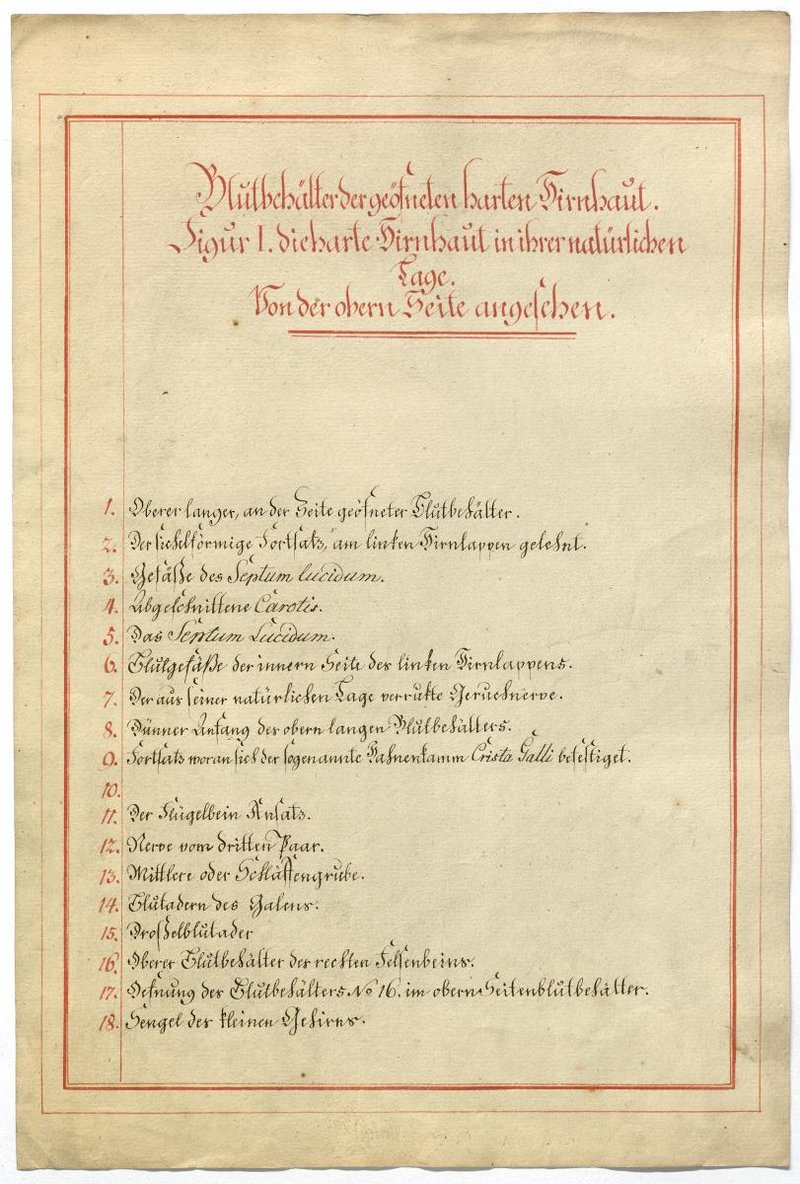 Blutbehälter der geöfneten harten Hirnhaut.
Figur I. die harte Hirnhaut in ihrer natürlichen
Lage.
Von der obern Seite angesehen.
1. Oberer langer, an der Seite geöfneter Blutbehälter.
2. Der sichelförmige Fortsatz, am linken Hirnlappen gelehnt.
3. Gefäße des Septum lucidum.
4. Abgeschnittene Carotis.
5. Das Septum Lucidum.
6. Blutgefäße der innern Seite des linken Hirnlappens.
7. Der aus seiner natürlichen Lage verrukte Geruchnerve.
8. Dünner Anfang des obern langen Blutbehälters.
9. Fortsatz woran sich der sogenannte Hahnenkamm Crista Galli befestiget.
10.
11. Der Flügelbein Ansatz.
12. Nerve vom dritten Paar.
13. Mittlere oder Schläffengrube.
14. Blutadern des Galens.
15. Droßelblutader
16. Oberer Blutbehälter des rechten Felsenbeins.
17. Oefnung des Blutbehälters No 16. im obern Seitenblutbehälter.
18. Stengel des kleinen Gehirns.